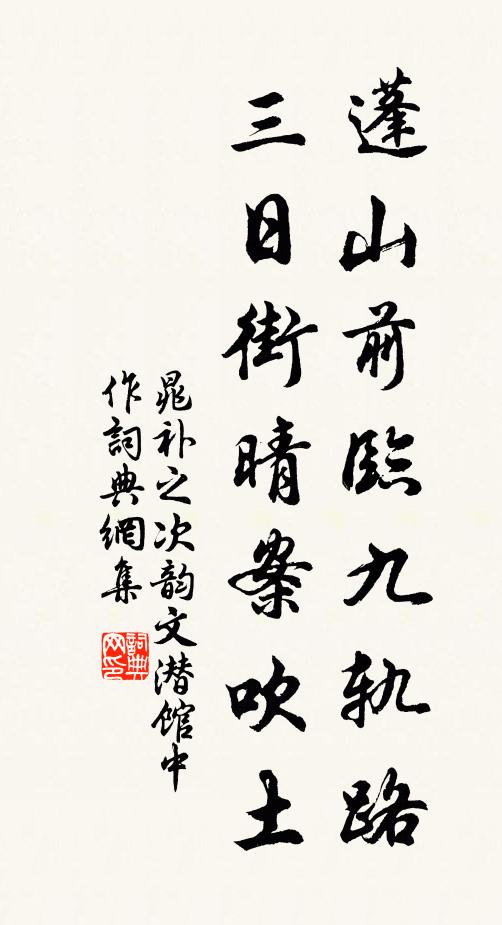 蓬山前臨九軌路
三日街晴案吹土
晁补之次韵文潜馆中
作詞典網集
詞典网印